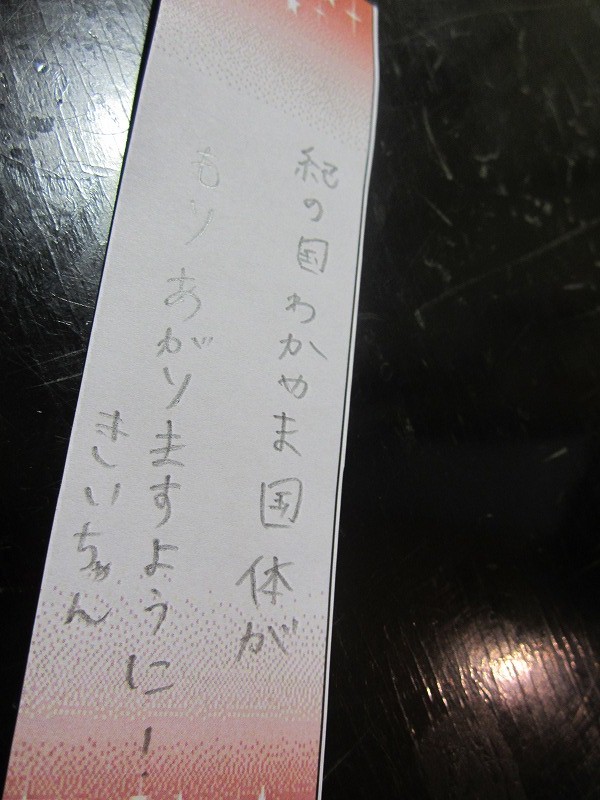 紀の国わかやま国体が
もりあがりますように!
きいちゃん